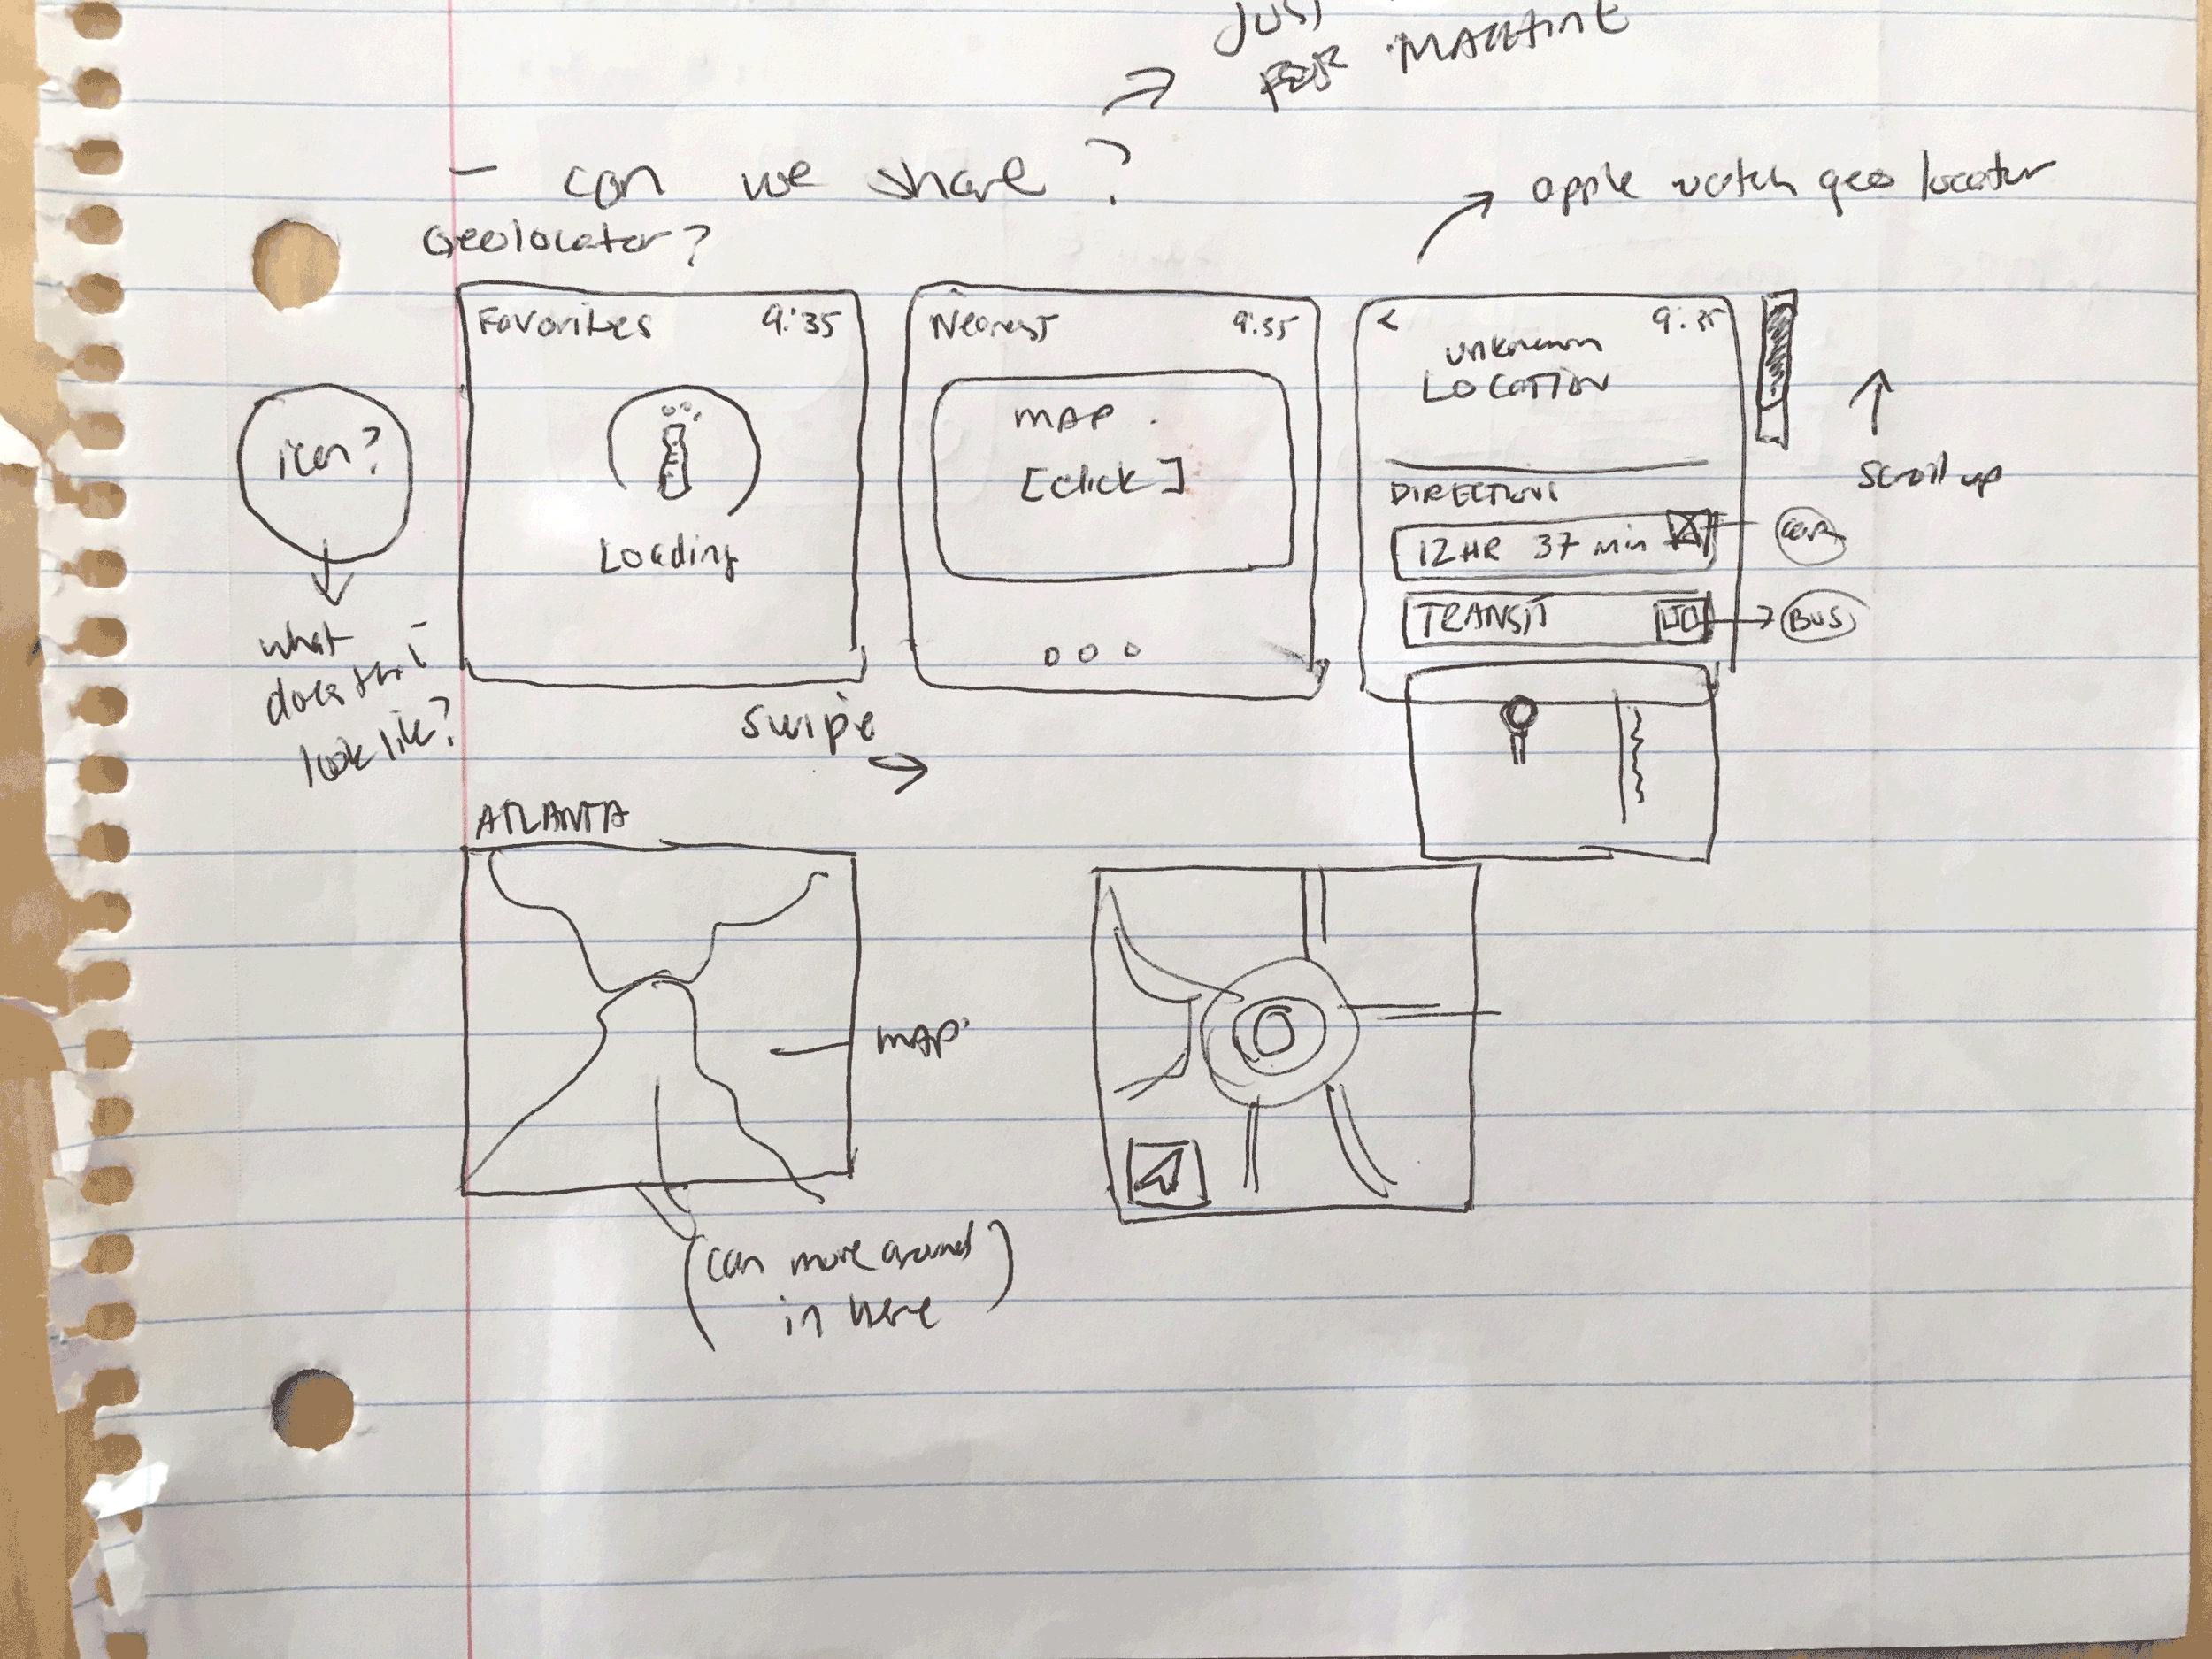 Just
FOR MACHINE
- can we share?
Geolocator?
apple watch geo locator
icon?
what
does this
look like?
Favorites 9:35
Loading
Nearest 9:35
MAP
[click]
< 9:35
unknown
LOCATION
DIRECTIONS
12 HR 37 min
TRANSIT
CAR
BUS
scroll up
swipe
ATLANTA
MAP
(can move around
in here)